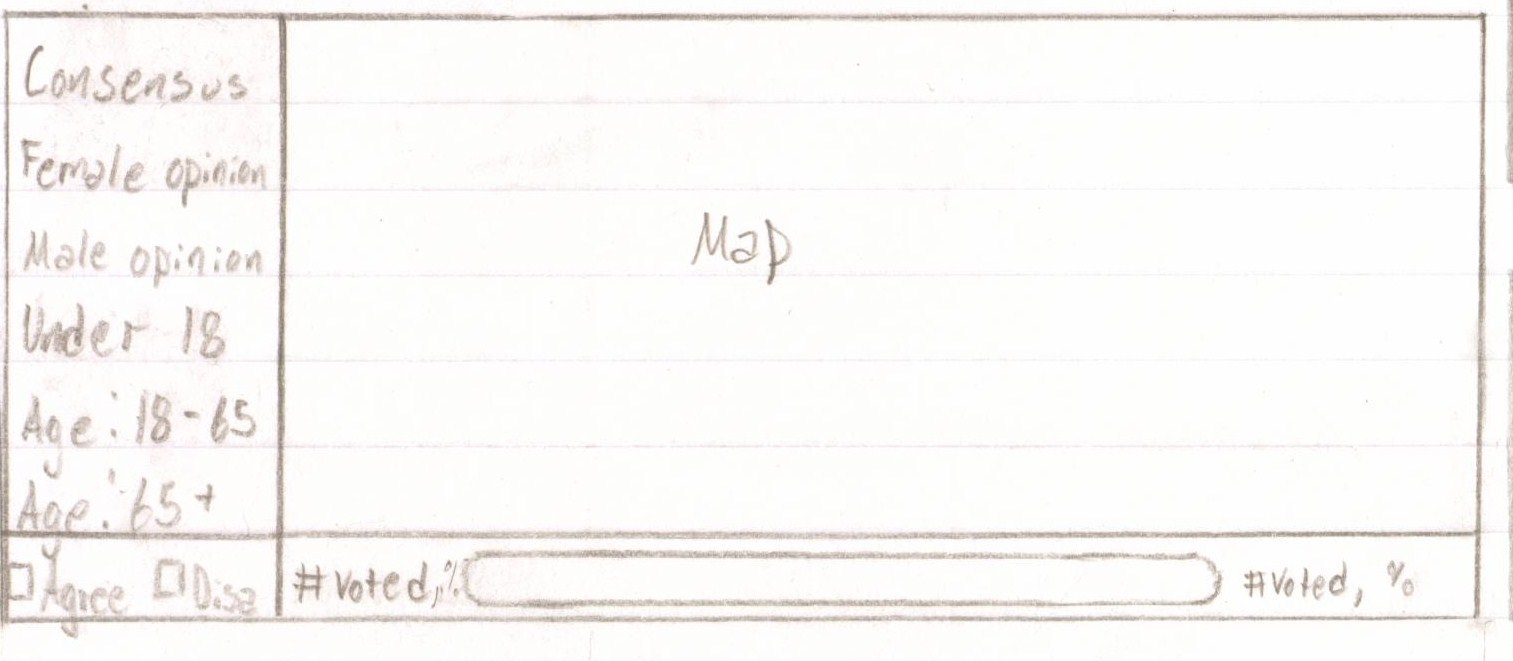 Consensus
Female opinion
Male opinion
Under 18
Age: 18-65
Age: 65+
Map
Agree Disa
#Voted, %
#Voted, %